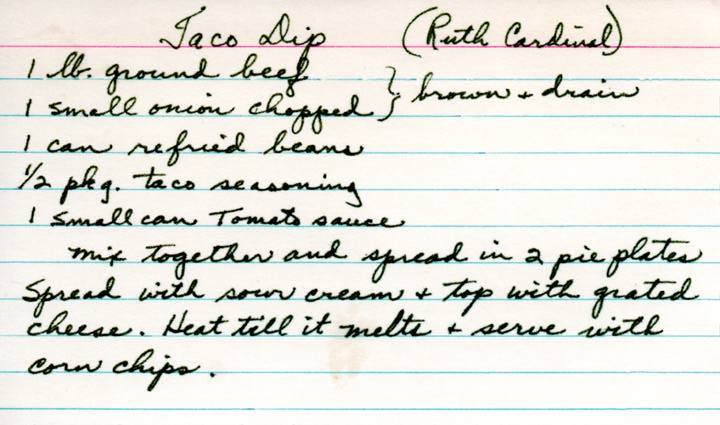 Taco Dip (Ruth Cardinal)
1 lb. ground beef
1 small onion chopped } brown + drain
1 can refried beans
1/2 pkg. taco seasoning
1 small can Tomato sauce
mix together and spread in 2 pie plates
Spread with sour cream + top with grated
cheese. Heat till it melts + serve with
corn chips.